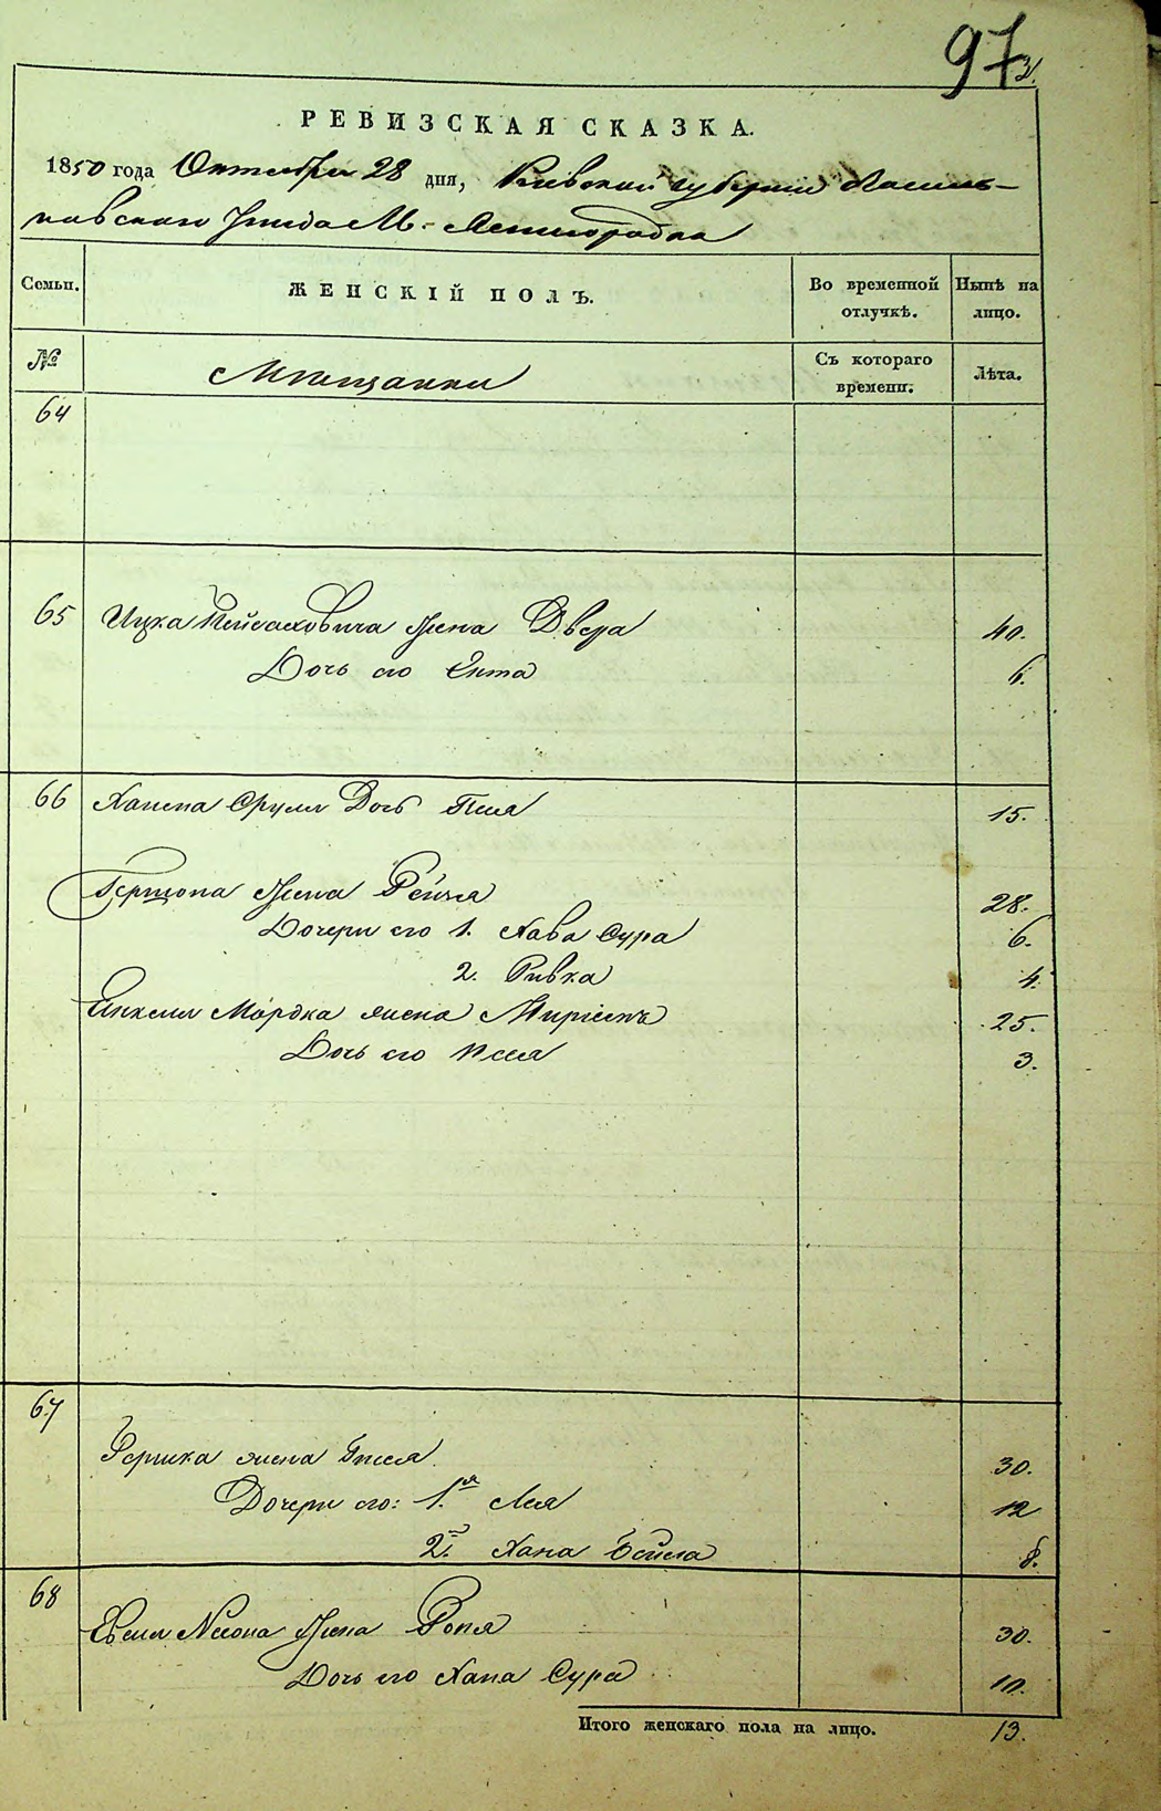 97
РЕВИЗСКАЯ СКАЗКА.
1850 года Октября 28 дня, Киевской губернии Василь-
ковского уезда М. Ясногородка
Семьи. ЖЕНСКІЙ ПОЛЪ. Во временной отлучкѣ. Нынѣ на лицо.
№ Мещанки Съ котораго времени. Лѣта.
64
65 Ицка Пейсаховича жена Двера 40.
Дочь его Ента 6.
66 Сруля Дочь 15.
Гершона жена Рейзя 28.
Дочери его 1. Хава Сура 6.
2. Ривка 4.
Янкеля Мордка жена Миріемъ 25.
Дочь его 3.
67
Гершка жена 30.
Дочери его: 1.я Лея 12
2.я Хана Бейла 8.
68
жена 30.
Дочь его Хана Сура 10.
Итого женскаго пола на лицо. 13.